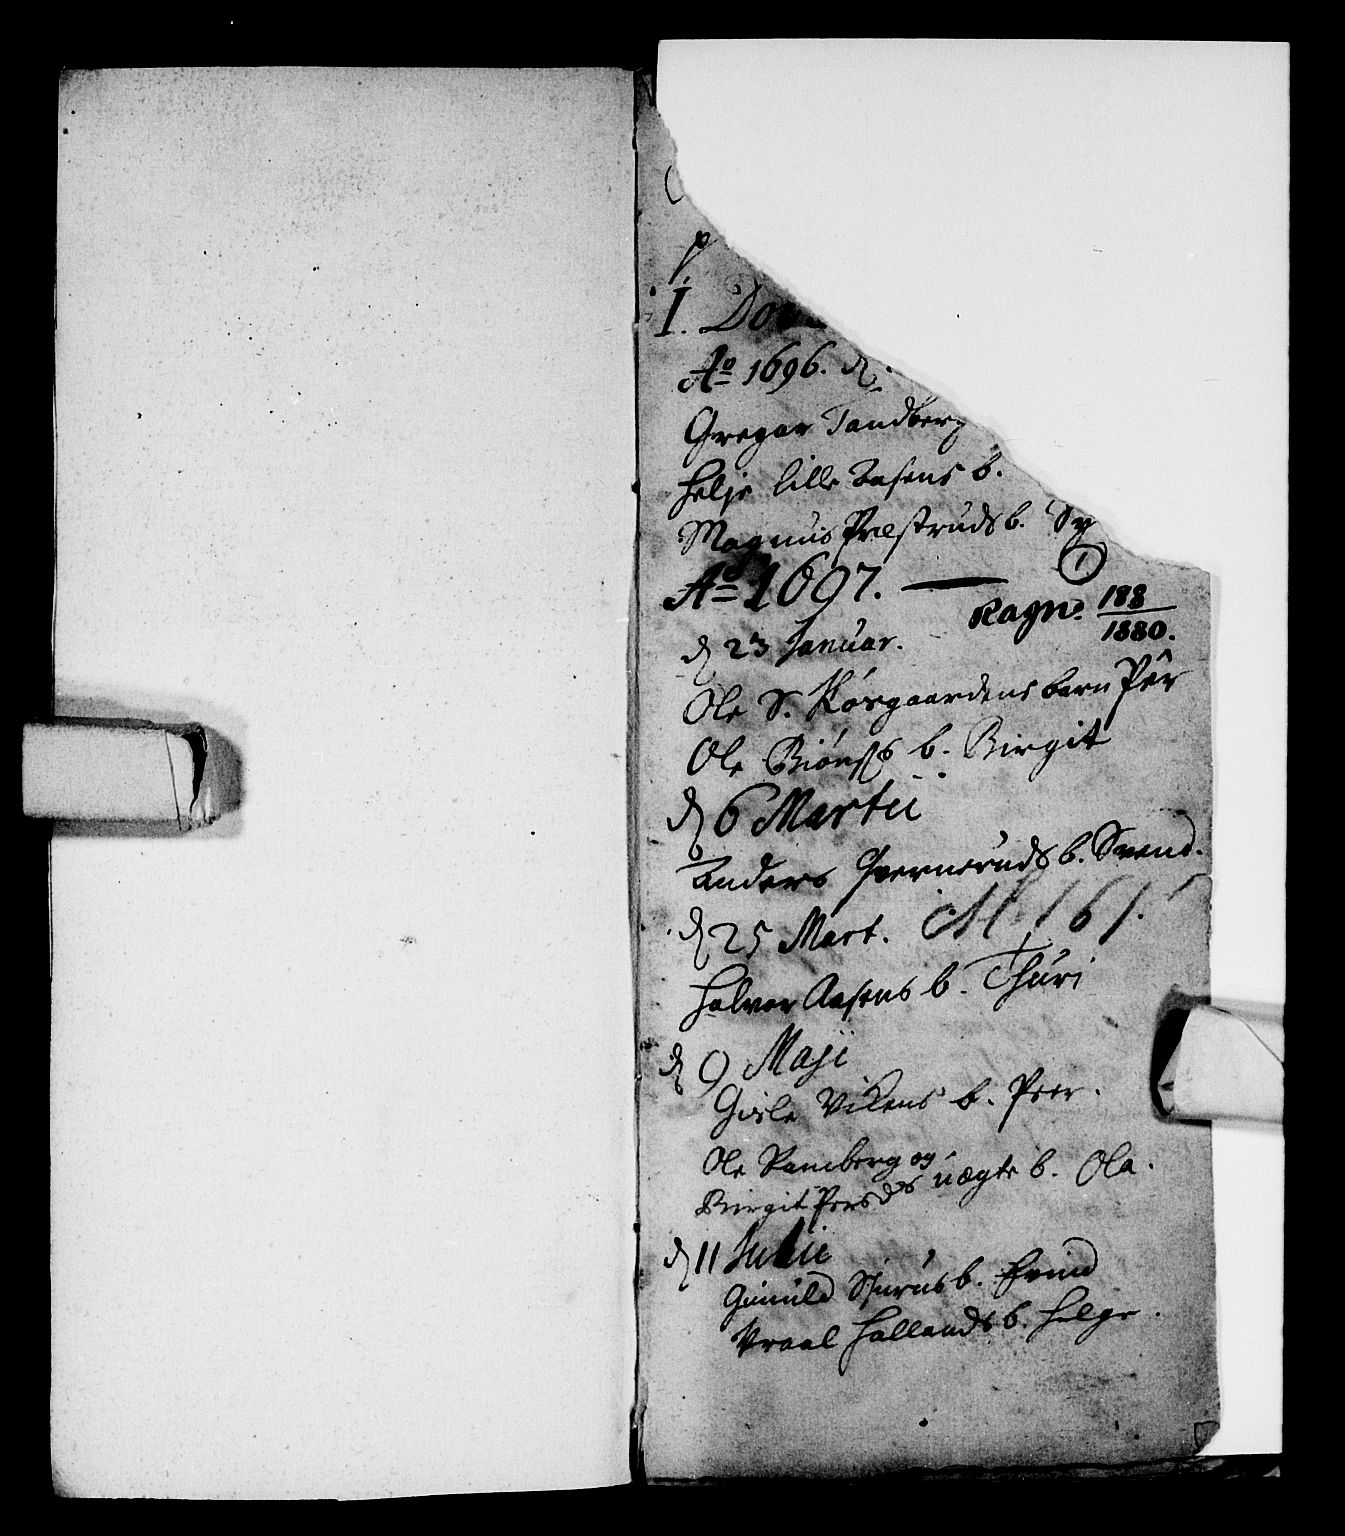 p
I. Do
Ao 1696. d.
Gregar Sandberg
Helje Lille Aasens b.
Magnus Præstruds b. Sy
1
Ao 1697. —
Ragn. 188/1880.
d 23 Januar.
Ole S. Kosgaardens barn Pêr
Ole b. Birgit
d 6 Martii
Anders b. Svend.
d 25 Mart. M. 161.
Halvor Aasens b. Thuri
d 9 Maji
Gisle Vikens b. Peer.
Ole Ramberg og
Birgit Persds uægte b. Ola.
d 11 Julii
Gunuld b. Evind
Vraal Hallands b. Helge.